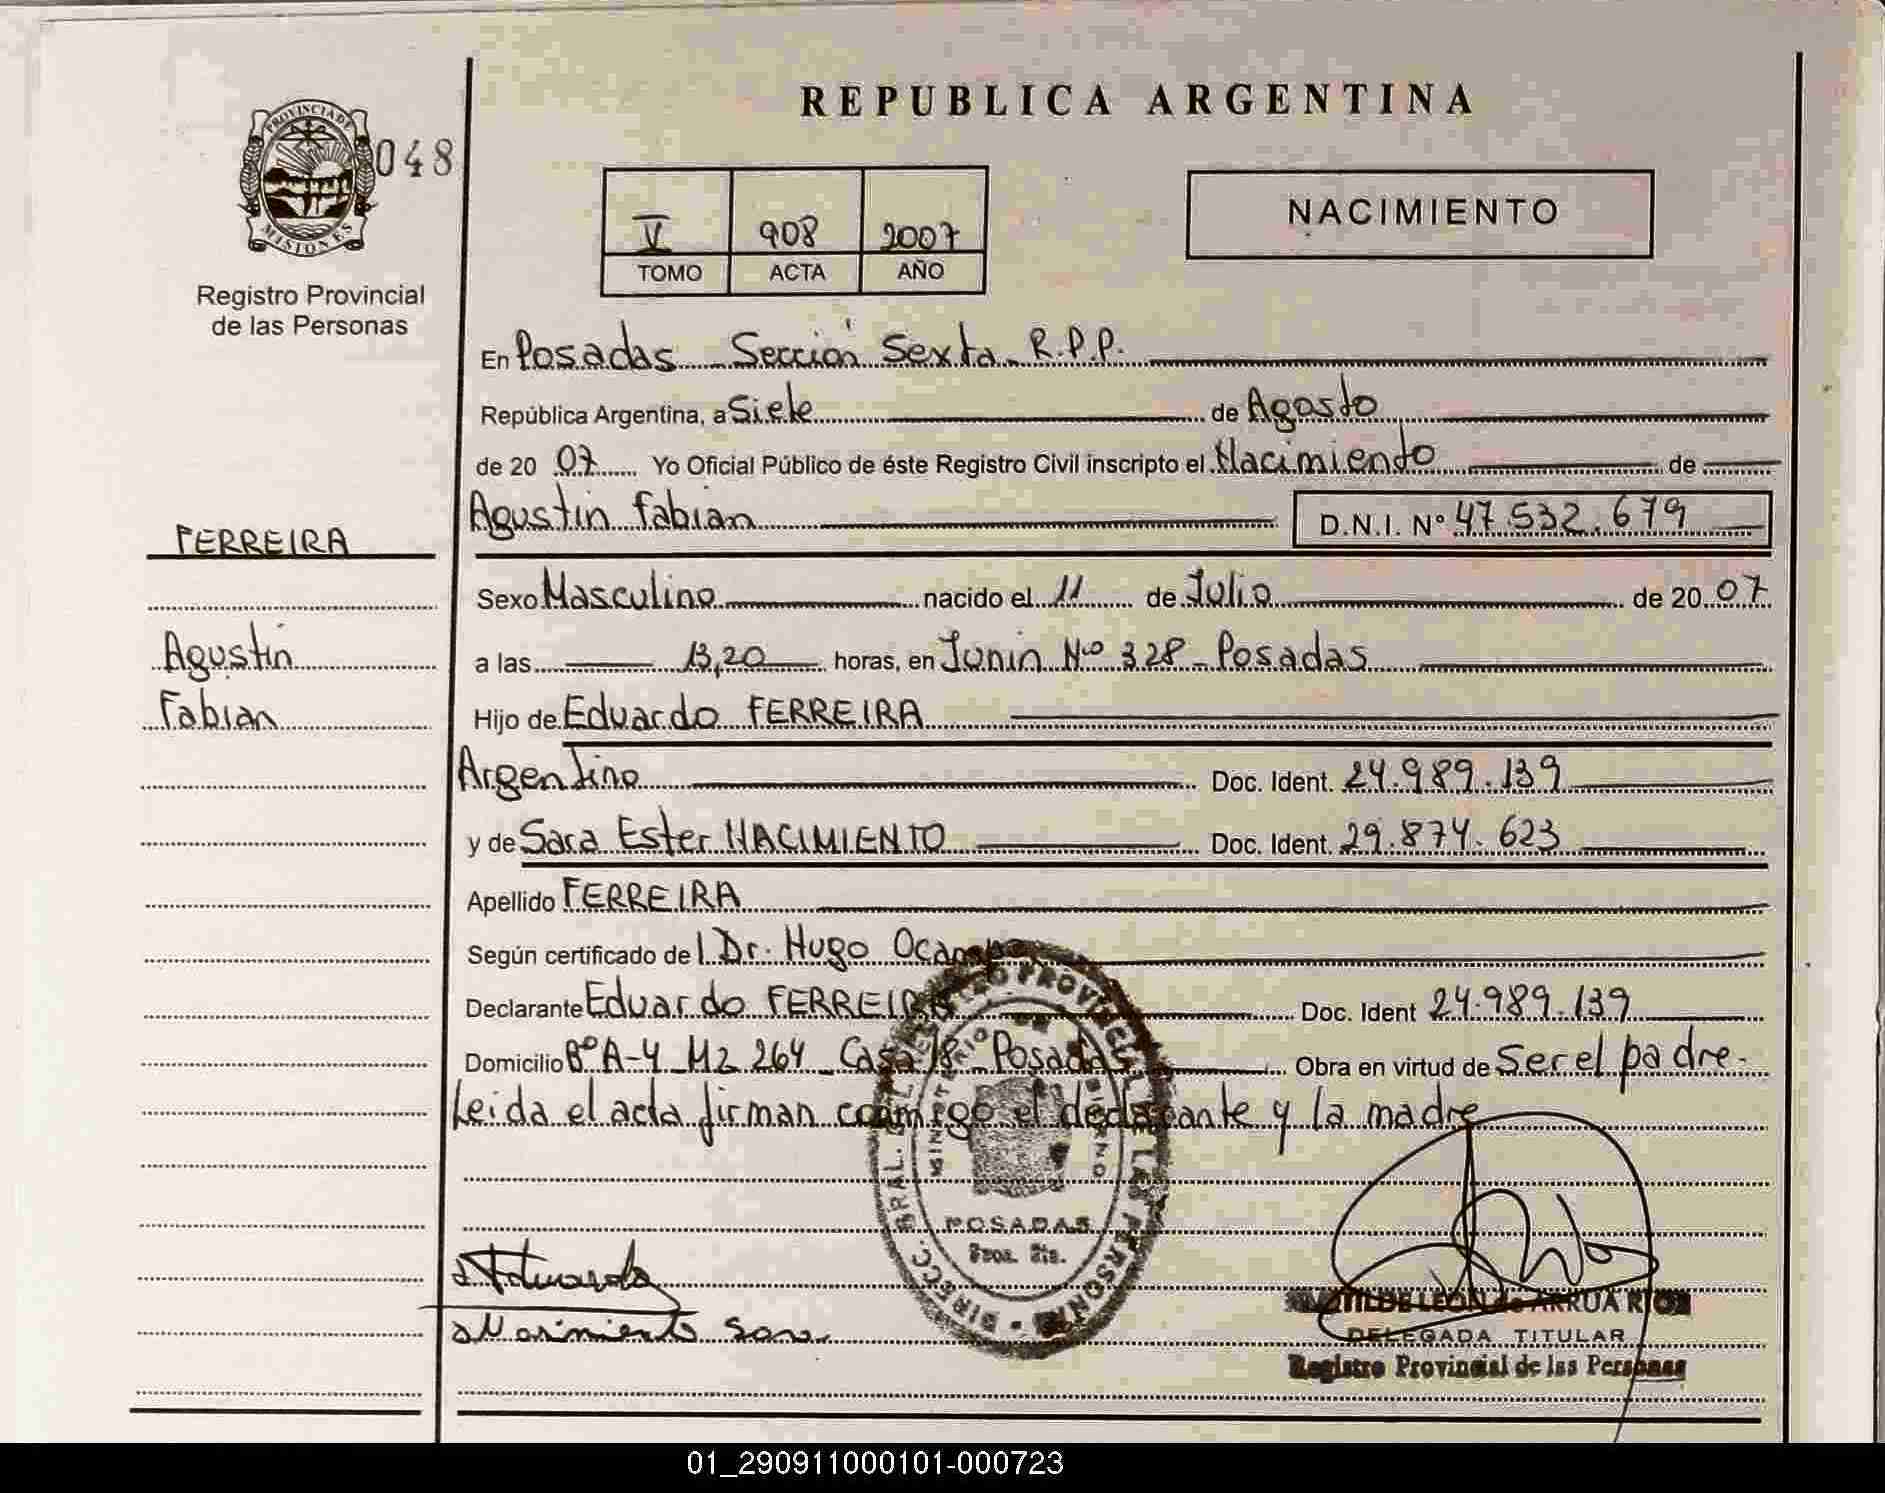 REPUBLICA ARGENTINA
PROVINCIA DE
MISIONES
048
Registro Provincial
de las Personas
V 908 2007
TOMO ACTA AÑO
NACIMIENTO
En Posadas - Sección Sexta - R.P.P.
República Argentina, a Siete de Agosto
de 20 07 Yo Oficial Público de éste Registro Civil inscripto el Nacimiento de
Agustin Fabian D.N.I. Nº 47.532.679
FERREIRA
Agustin
Fabian
Sexo Masculino nacido el 11 de Julio de 20 07
a las 13,20 horas, en Junin Nº 328 - Posadas
Hijo de Eduardo FERREIRA
Argentino Doc. Ident. 24.989.139
y de Sara Ester NACIMIENTO Doc. Ident. 29.874.623
Apellido FERREIRA
Según certificado de l Dr. Hugo Ocampo
Declarante Eduardo FERREIRA Doc. Ident 24.989.139
Domicilio Bº A-4 - Mz 264 - Casa 18 - Posadas Obra en virtud de Ser el padre -
Leida el acta firman conmigo el declarante y la madre
DIRECC. GRAL. DEL REGISTRO PROVINCIAL DE LAS PERSONAS
MINISTERIO DE GOBIERNO
POSADAS
Secc. 6ta.
Eduardo
Nacimiento Sara
MATILDE LEON de ARRUA RIOS
DELEGADA TITULAR
Registro Provincial de las Personas
01_290911000101-000723